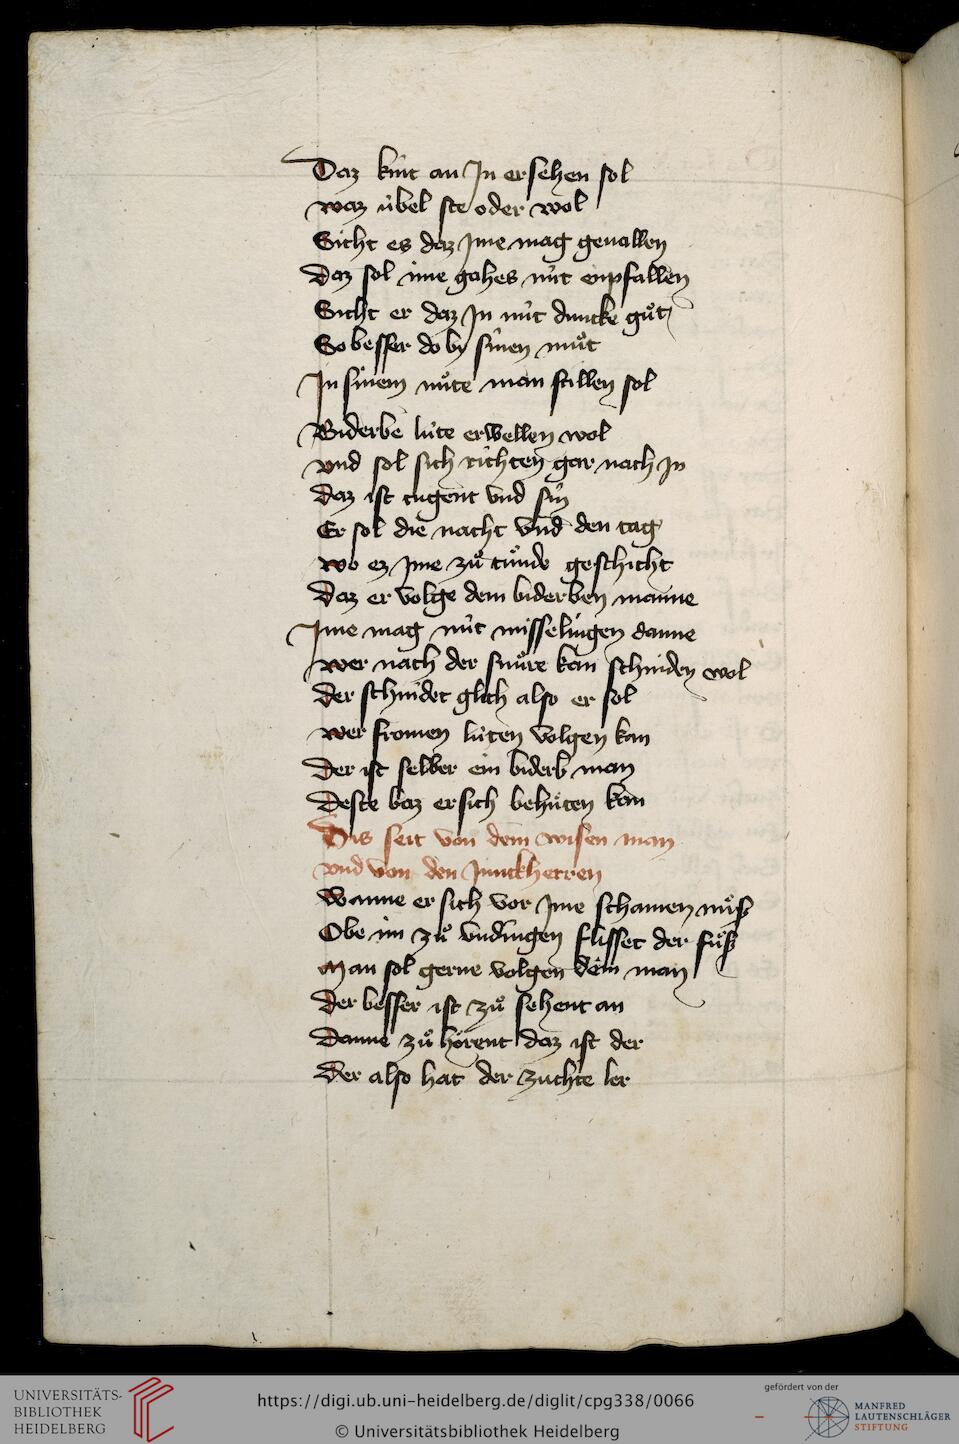 Daz kint an Jn ersehen sol
waz úbel ste oder wol
Sicht es daz Jme mag geuallen
Daz sol ime gahes nút enpfallen
Sicht er daz Jn nút duncke guͦt
So besser do by sinen muͦt
Jn sinem muͦte man stillen sol
Biderbe lúte erwellen wol
vnd sol sich richten gar nach Jn
Daz ist tugent vnd sin
Er sol die nacht vnd den tag
wo ez Jme zuͦ tuͦnde geschicht
Daz er volge dem biderben manne
Jme mag nút misselingen danne
wer nach der snuͦre kan schniden wol
Der schnidet glich also er sol
wer fromen lúten volgen kan
Der ist selber ein biderb man
Deste baz er sich behuͤten kan
Dis seit von dem wisen man
vnd von den Junckherren
Wanne er sich vor Jme schamen muͦß
Obe im zuͦ vndingen flisset der fuͦß
Man sol gerne volgen dem man
Der besser ist zuͦ sehent an
Danne zuͦ hoͤrent daz ist der
Der also hat der zuchte ler
UNIVERSITÄTS-
BIBLIOTHEK
HEIDELBERG
https://digi.ub.uni-heidelberg.de/diglit/cpg338/0066
© Universitätsbibliothek Heidelberg
gefördert von der
MANFRED
LAUTENSCHLÄGER
STIFTUNG